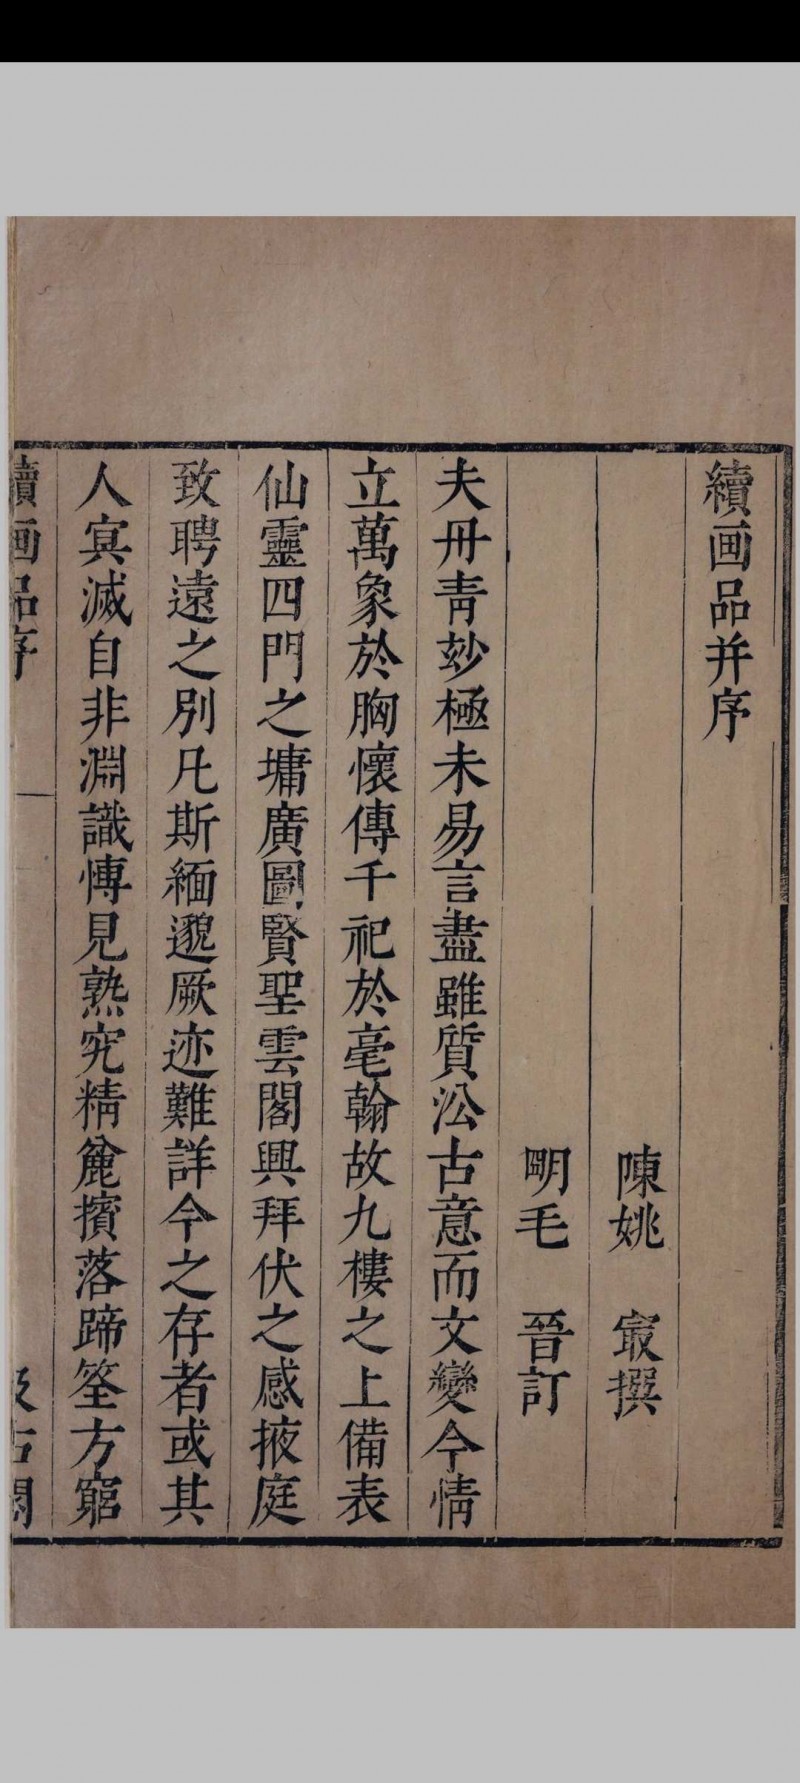 續画品并序
陳姚　㝡撰
明毛　晉訂
夫丹青妙極未易言盡雖質沿古意而文變今情
立萬象於胸懷傳千祀於毫翰故九樓之上備表
仙靈四門之墉廣圖賢聖雲閣興拜伏之感掖庭
致聘遠之別凡斯緬邈厥迹難詳今之存者或其
人冥滅自非淵識博見熟究精麄擯落蹄筌方窮
續画品序
汲古閣